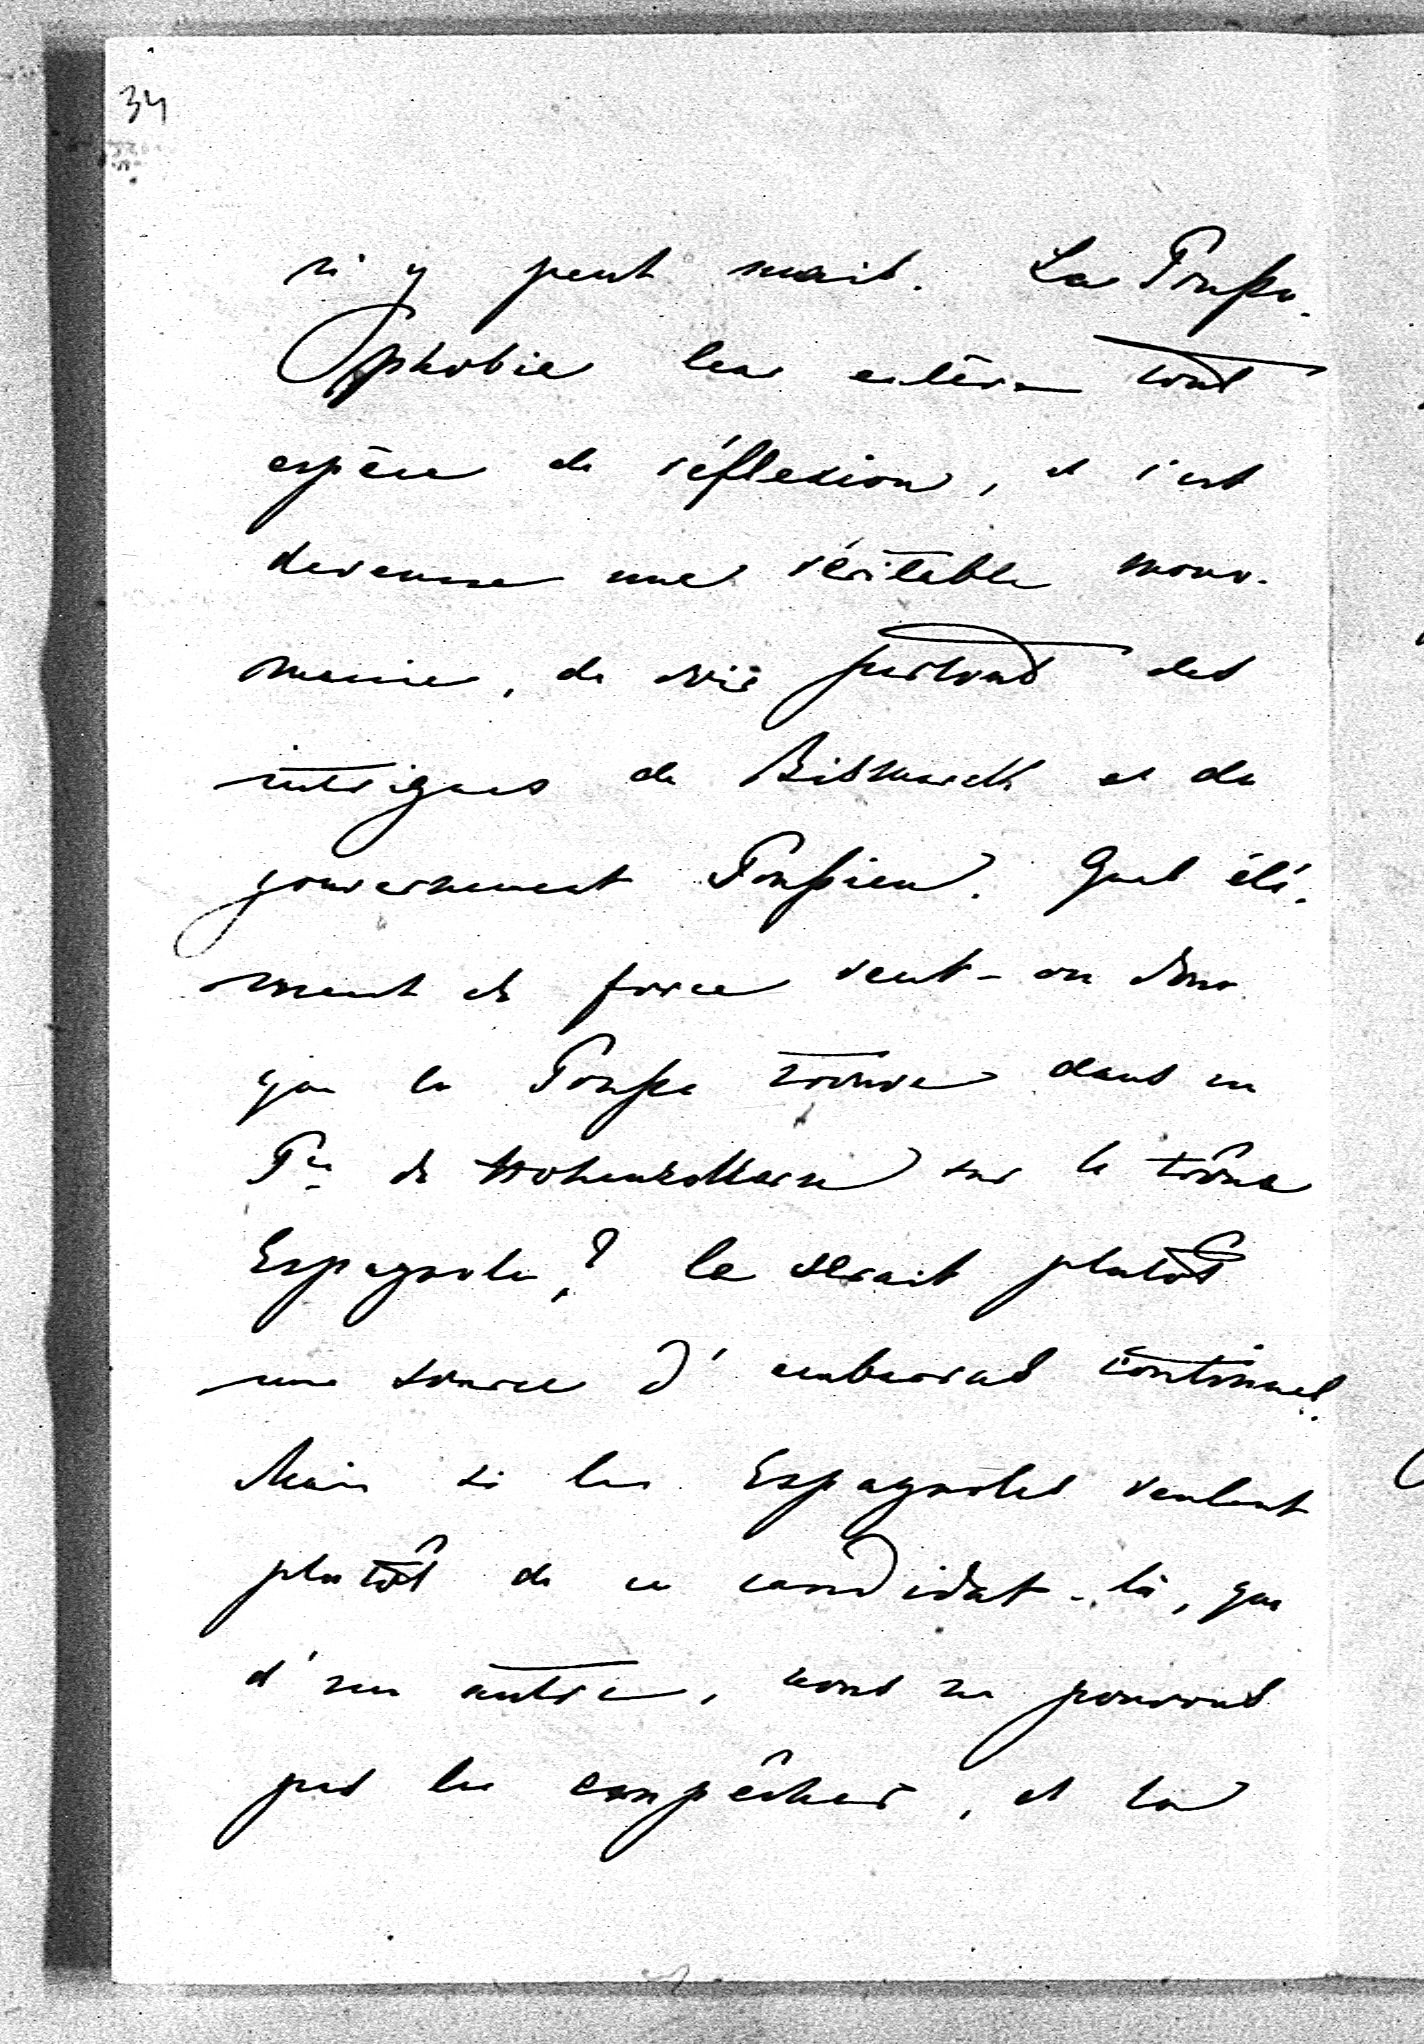 34
n'y peut mais. La Prusso-
phobie leur enlève tout
espèce de réflexion, et c'est
devenue une véritable mono-
manie, de voir partout des
intrigues de Bismarck et du
gouvernement Prussien. Quel élé-
ment de force veut-on donc
que la Prusse trouve dans un
Pce de Hohenzollern sur le trône
Espagnole? Ce serait plutôt
une source d'embarras continuel.
Mais si les Espagnoles veulent
plutôt de ce candidat-là, que
d'un autre, nous ne pouvons
pas les empêcher, et la